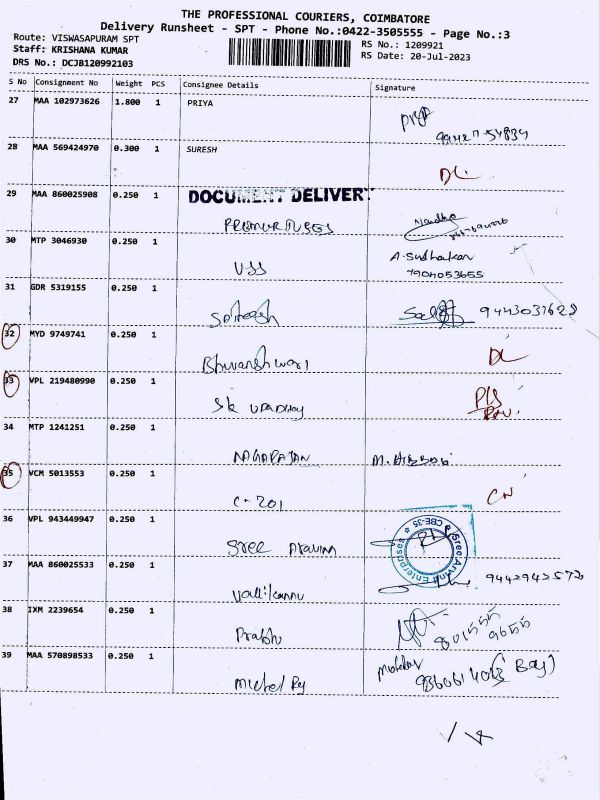 THE PROFESSIONAL COURIERS, COIMBATORE
Delivery Runsheet - SPT - Phone No.:0422-3505555 - Page No.:3
Route: VISWASAPURAM SPT
Staff: KRISHANA KUMAR
DRS No.: DCJB120992103
RS No.: 1209921
RS Date: 20-Jul-2023
S No Consignment No Weight PCS Consignee Details Signature
27 MAA 102973626 1.800 1 PRIYA
priya
28 MAA 569424970 0.300 1 SURESH
DL
29 MAA 860025908 0.250 1 DOCUMENT DELIVERY
Nandha
30 MTP 3046930 0.250 1
VSS
A. Sudhakar
7904053655
31 GDR 5319155 0.250 1
9443037628
32 MYD 9749741 0.250 1
Bhuvaneshwari
DL
33 VPL 219480990 0.250 1
SK
34 MTP 1241251 0.250 1
NAGARAJAN
35 VCM 5013553 0.250 1
C-201
CN
36 VPL 943449947 0.250 1
Sree Aravind
Sree Arvind Enterprises
CBE-35
37 MAA 860025533 0.250 1
Vallikannu
9442942572
38 IXM 2239654 0.250 1
Prabhu
801555
9655
39 MAA 570898533 0.250 1
Michel Raj